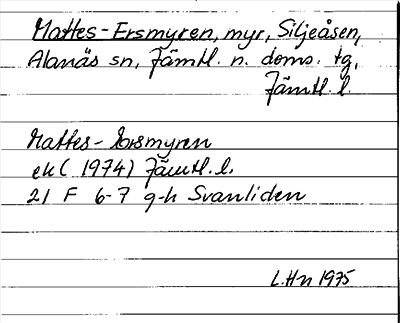 Mattes-Ersmyren, myr, Siljeåsen,
Alanäs sn, Jämtl. n. doms. tg,
Jämtl. l.
Mattes-Ersmyren
ek ( 1974) Jämtl. l.
21 F 6-7 g-h Svanliden
L.Hn 1975